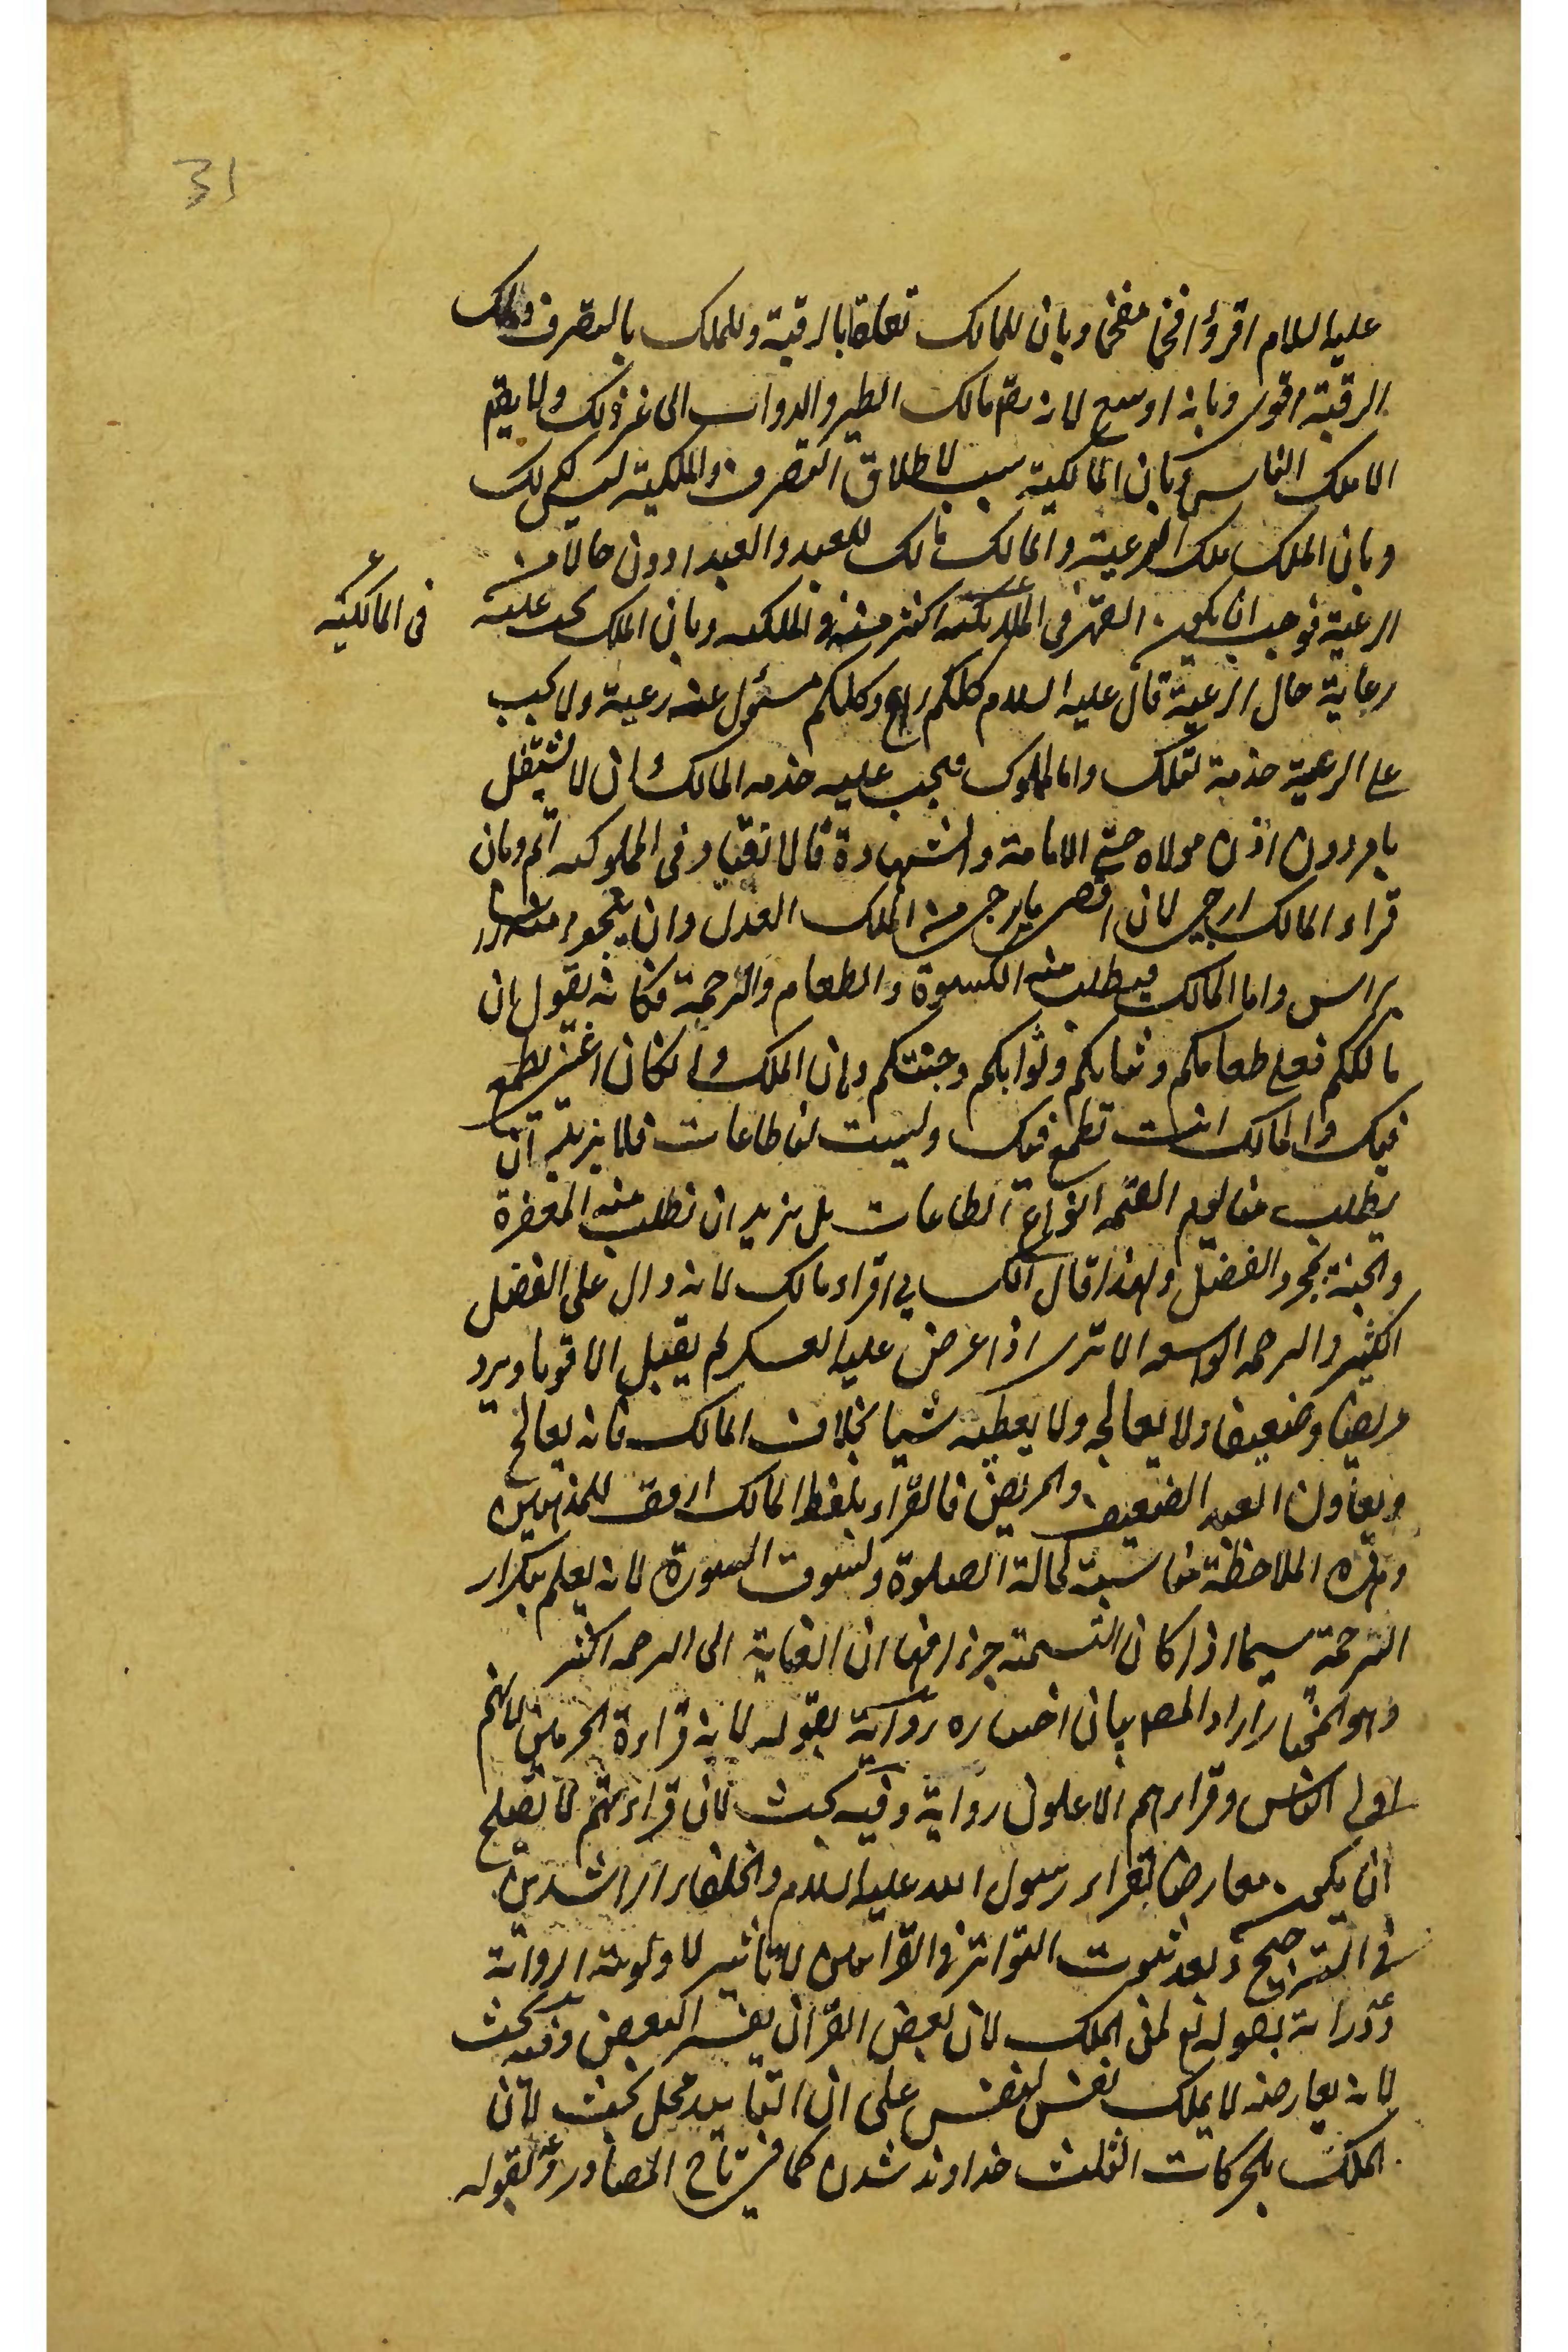 31
عليه السلام اقرؤا فخما مفخما وبان للمالك تعلقا بالرقبة وللملك بالتصرف وملك
الرقبة اقوى وبانه اوسع لانه يعم مالك الطير والدواب الى غير ذلك ولا يعم
الا ملك الناس وبان المالكية سبب لاطلاق التصرف والملكية ليس كذلك
وبان الملك ملك الرعية والمالك مالك للعبد والعبد ادون حالا من
الرعية فوجب ان يكون القهر فى المالكية اكثر منه فى الملكية وبان الملك يجب عليه
فى المالكية
رعاية حال الرعية قال عليه السلام كلكم راع وكلكم مسئول عنه رعية ولا يجب
على الرعية خدمة الملك واما المملوك فيجب عليه خدمة المالك وان لا يشتغل
بامر دون اذن مولاه حتى الامامة والشهادة فالانقياد فى المملوكية اتم وبان
قراءة المالك ارجى لان اقصى ما يرجى من الملك العدل وان ينجو منه
براس واما المالك فيطلب منه الكسوة والطعام والرحمة فكانه يقول ان
مالككم فعلى طعامكم وثيابكم وثوابكم وجنتكم وان الملك وان كان اغنى يطمع
فيك والمالك انت تطمع فيه وليست لنا طاعات فلا يريد ان
يطلب منا يوم القيمة انواع الطاعات بل يريد ان نطلب منه المغفرة
والجنة بمجرد الفضل ولهذا قال الكسايى اقراء مالك لانه دال على الفضل
الكثير والرحمة الواسعة الا ترى اذا عرض عليه العسكر لم يقبل الا قويا ويرد
مريضا وضعيفا ولا يعالجه ولا يعطيه شيا بخلاف المالك فانه يعالج
ويعاون العبد الضعيف والمريض فالقراءة بلفظ المالك ارفق للمذنبين
وهذه الملاحظة مناسبة لحالة الصلوة ولسوق السورة لانه يعلم بتكرار
الرحمة سيما اذا كان التسمية جزءا منها ان العناية الى الرحمة اكثر
وهو المختار اراد المص بيان اختياره رواية بقوله لانه قراءة الحرمين لانهم
اولى الناس وقراءهم الاعلون رواية وفيه بحث لان قراءتهم لا تصلح
ان يكون معارضا لقراءة رسول الله عليه السلام والخلفاء الراشدين
فى الترجيح وبعد ثبوت التواتر فى القراءتين لا تاثير لاولوية الرواية
ودراية بقوله تع لمن الملك لان بعض القرآن يفسر البعض وفيه بحث
لانه يعارضه لا يملك نفس لنفس على ان التاييد محل بحث لان
الملك بالحركات الثلث خداوند شدن كما فى تاج المصادر وبقوله